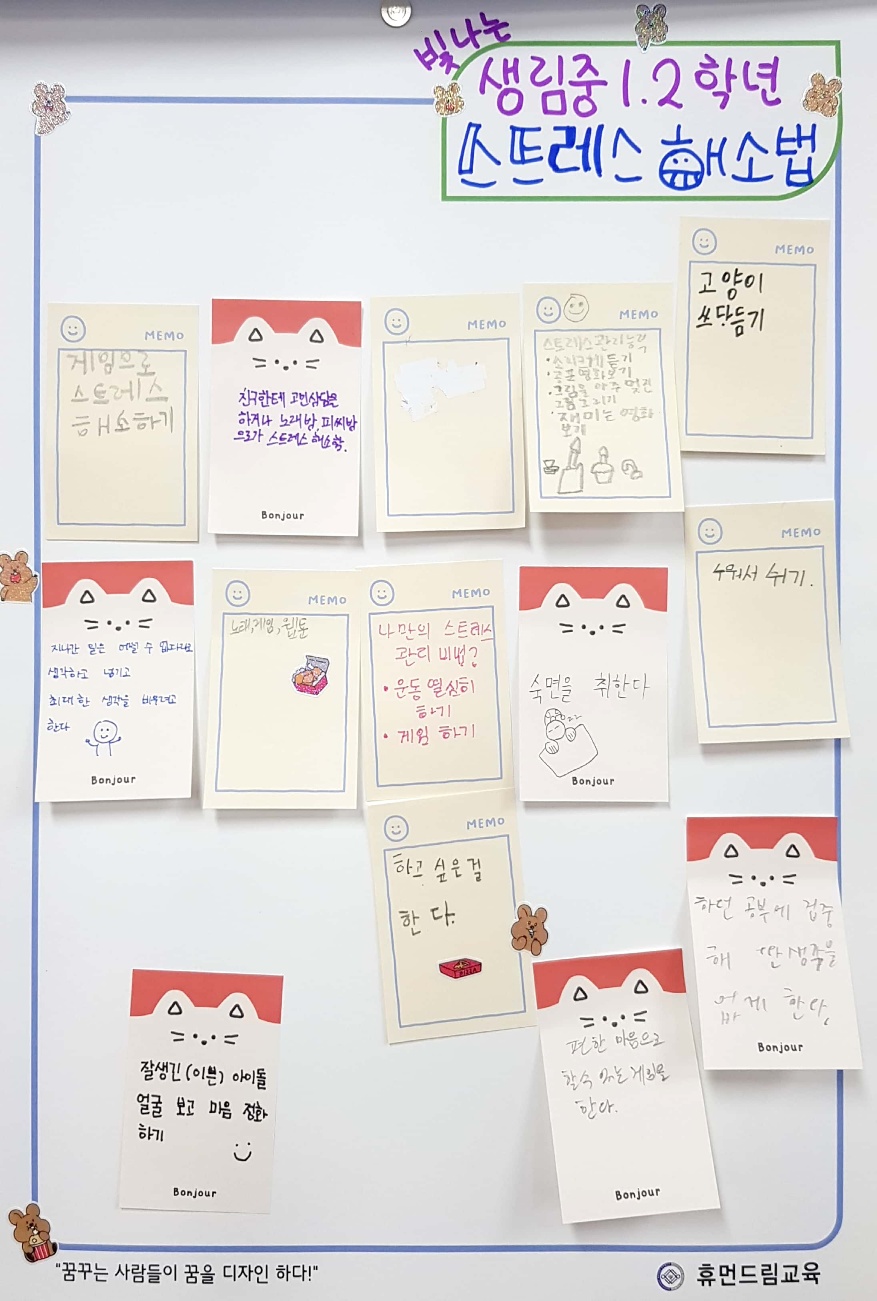 빛나는
생림중 1.2학년
스트레스 해소법
MEMO
고양이
쓰담듬기
MEMO
게임으로
스트레스
해소하기
친구한테 고민상담을
하거나 노래방, 피씨방
으로가 스트레스 해소함.
Bonjour
MEMO
MEMO
스트레스관리능력
듣기
공포영화보기
그림을 아주 멋진
그림그리기
재미는 영화
보기
지나간 일은 어쩔 수 없다고
생각하고 넘기고
최대한 생각을 비우려고
한다
Bonjour
MEMO
노래,게임,웹툰
MEMO
나만의 스트레스
관리 비법?
• 운동 열심히
하기
• 게임 하기
숙면을 취한다
Bonjour
MEMO
누워서 쉬기.
MEMO
하고 싶은걸
한다.
하던 공부에 집중
해 딴생각을
없게 한다.
Bonjour
잘생긴(이쁜) 아이돌
얼굴 보고 마음 정화
하기
Bonjour
편한 마음으로
할수 있는게임을
한다.
Bonjour
"꿈꾸는 사람들이 꿈을 디자인 하다!"
휴먼드림교육